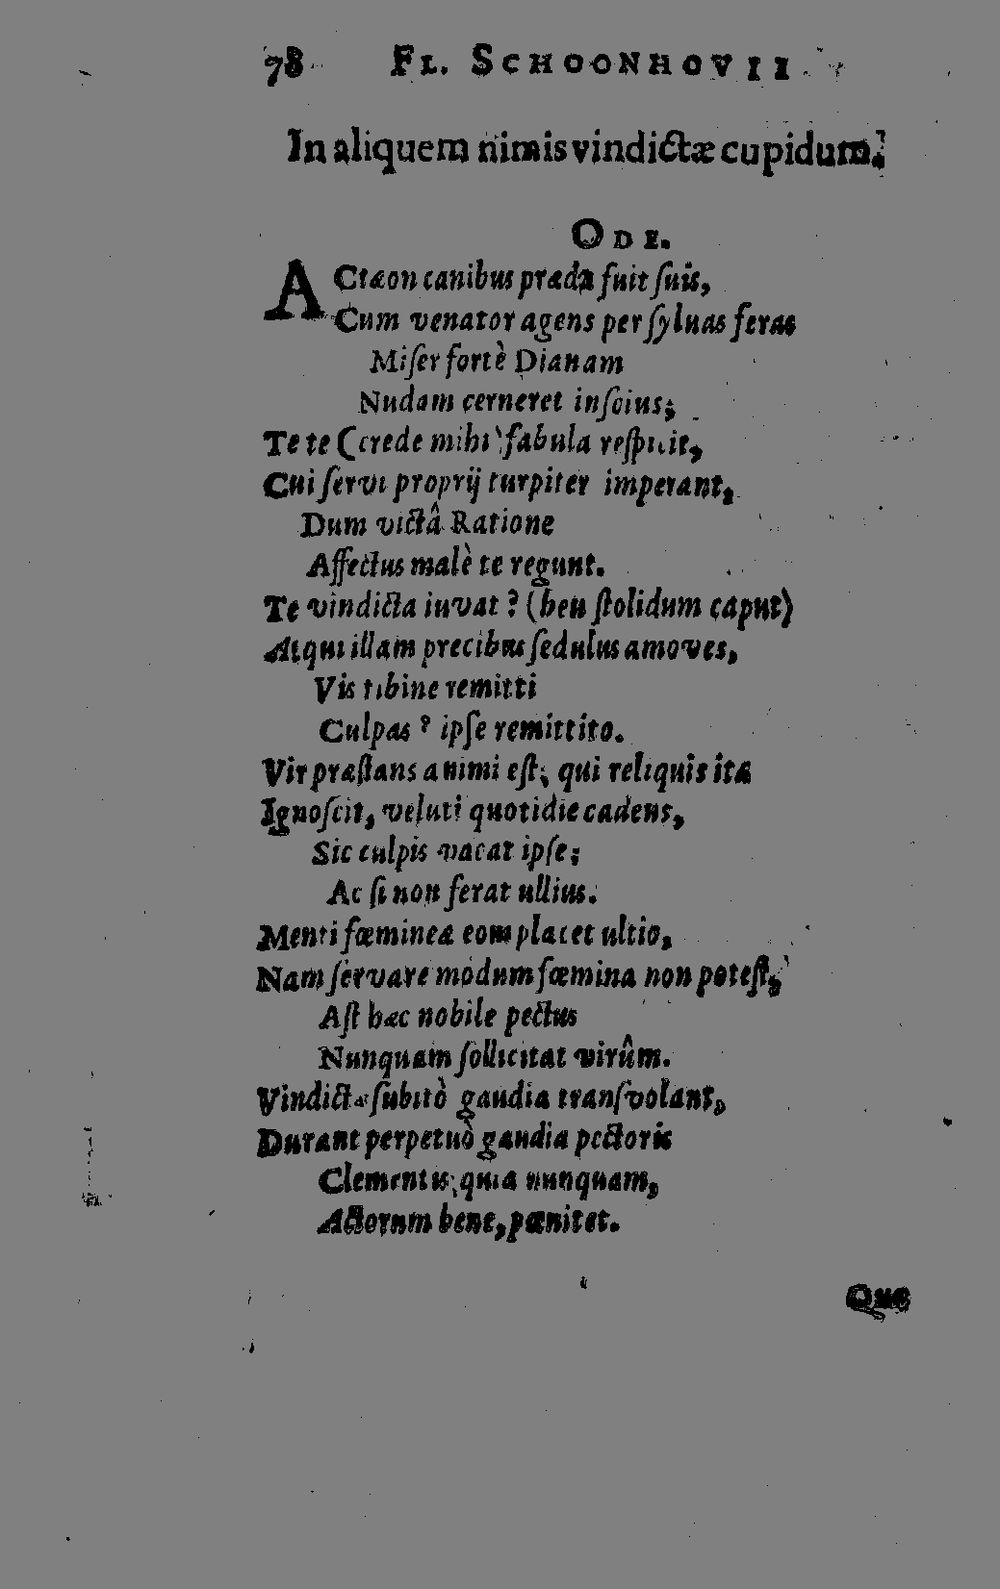 78 FL. SCHOONHOVII
In aliquem nimis vindictæ cupidum.
ODE.
ACtæon canibus præda fuit ſuis,
Cum venator agens per ſyluas feras
Miſer fortè Dianam
Nudam cerneret inſcius;
Te te (crede mihi) fabula reſpuit,
Cui ſervi proprij turpiter imperant,
Dum victâ Ratione
Affectus malè te regunt.
Te vindicta iuvat? (heu ſtolidum caput)
Atqui illam precibus ſedulus amoves,
Vis tibine remitti
Culpas? ipſe remittito.
Vir præſtans animi eſt, qui reliquis ita
Ignoſcit, veluti quotidie cadens,
Sic culpis vacat ipſe;
Ac ſi non ferat ullius.
Menti fœmineæ eom placet ultio,
Nam ſervare modum fœmina non poteſt,
Aſt hæc nobile pectus
Nunquam ſollicitat virûm.
Vindictæ ſubitò gaudia tranſvolant,
Durant perpetuò gaudia pectoris
Clementis, quia nunquam,
Actorum bene, pœnitet.
Quæ